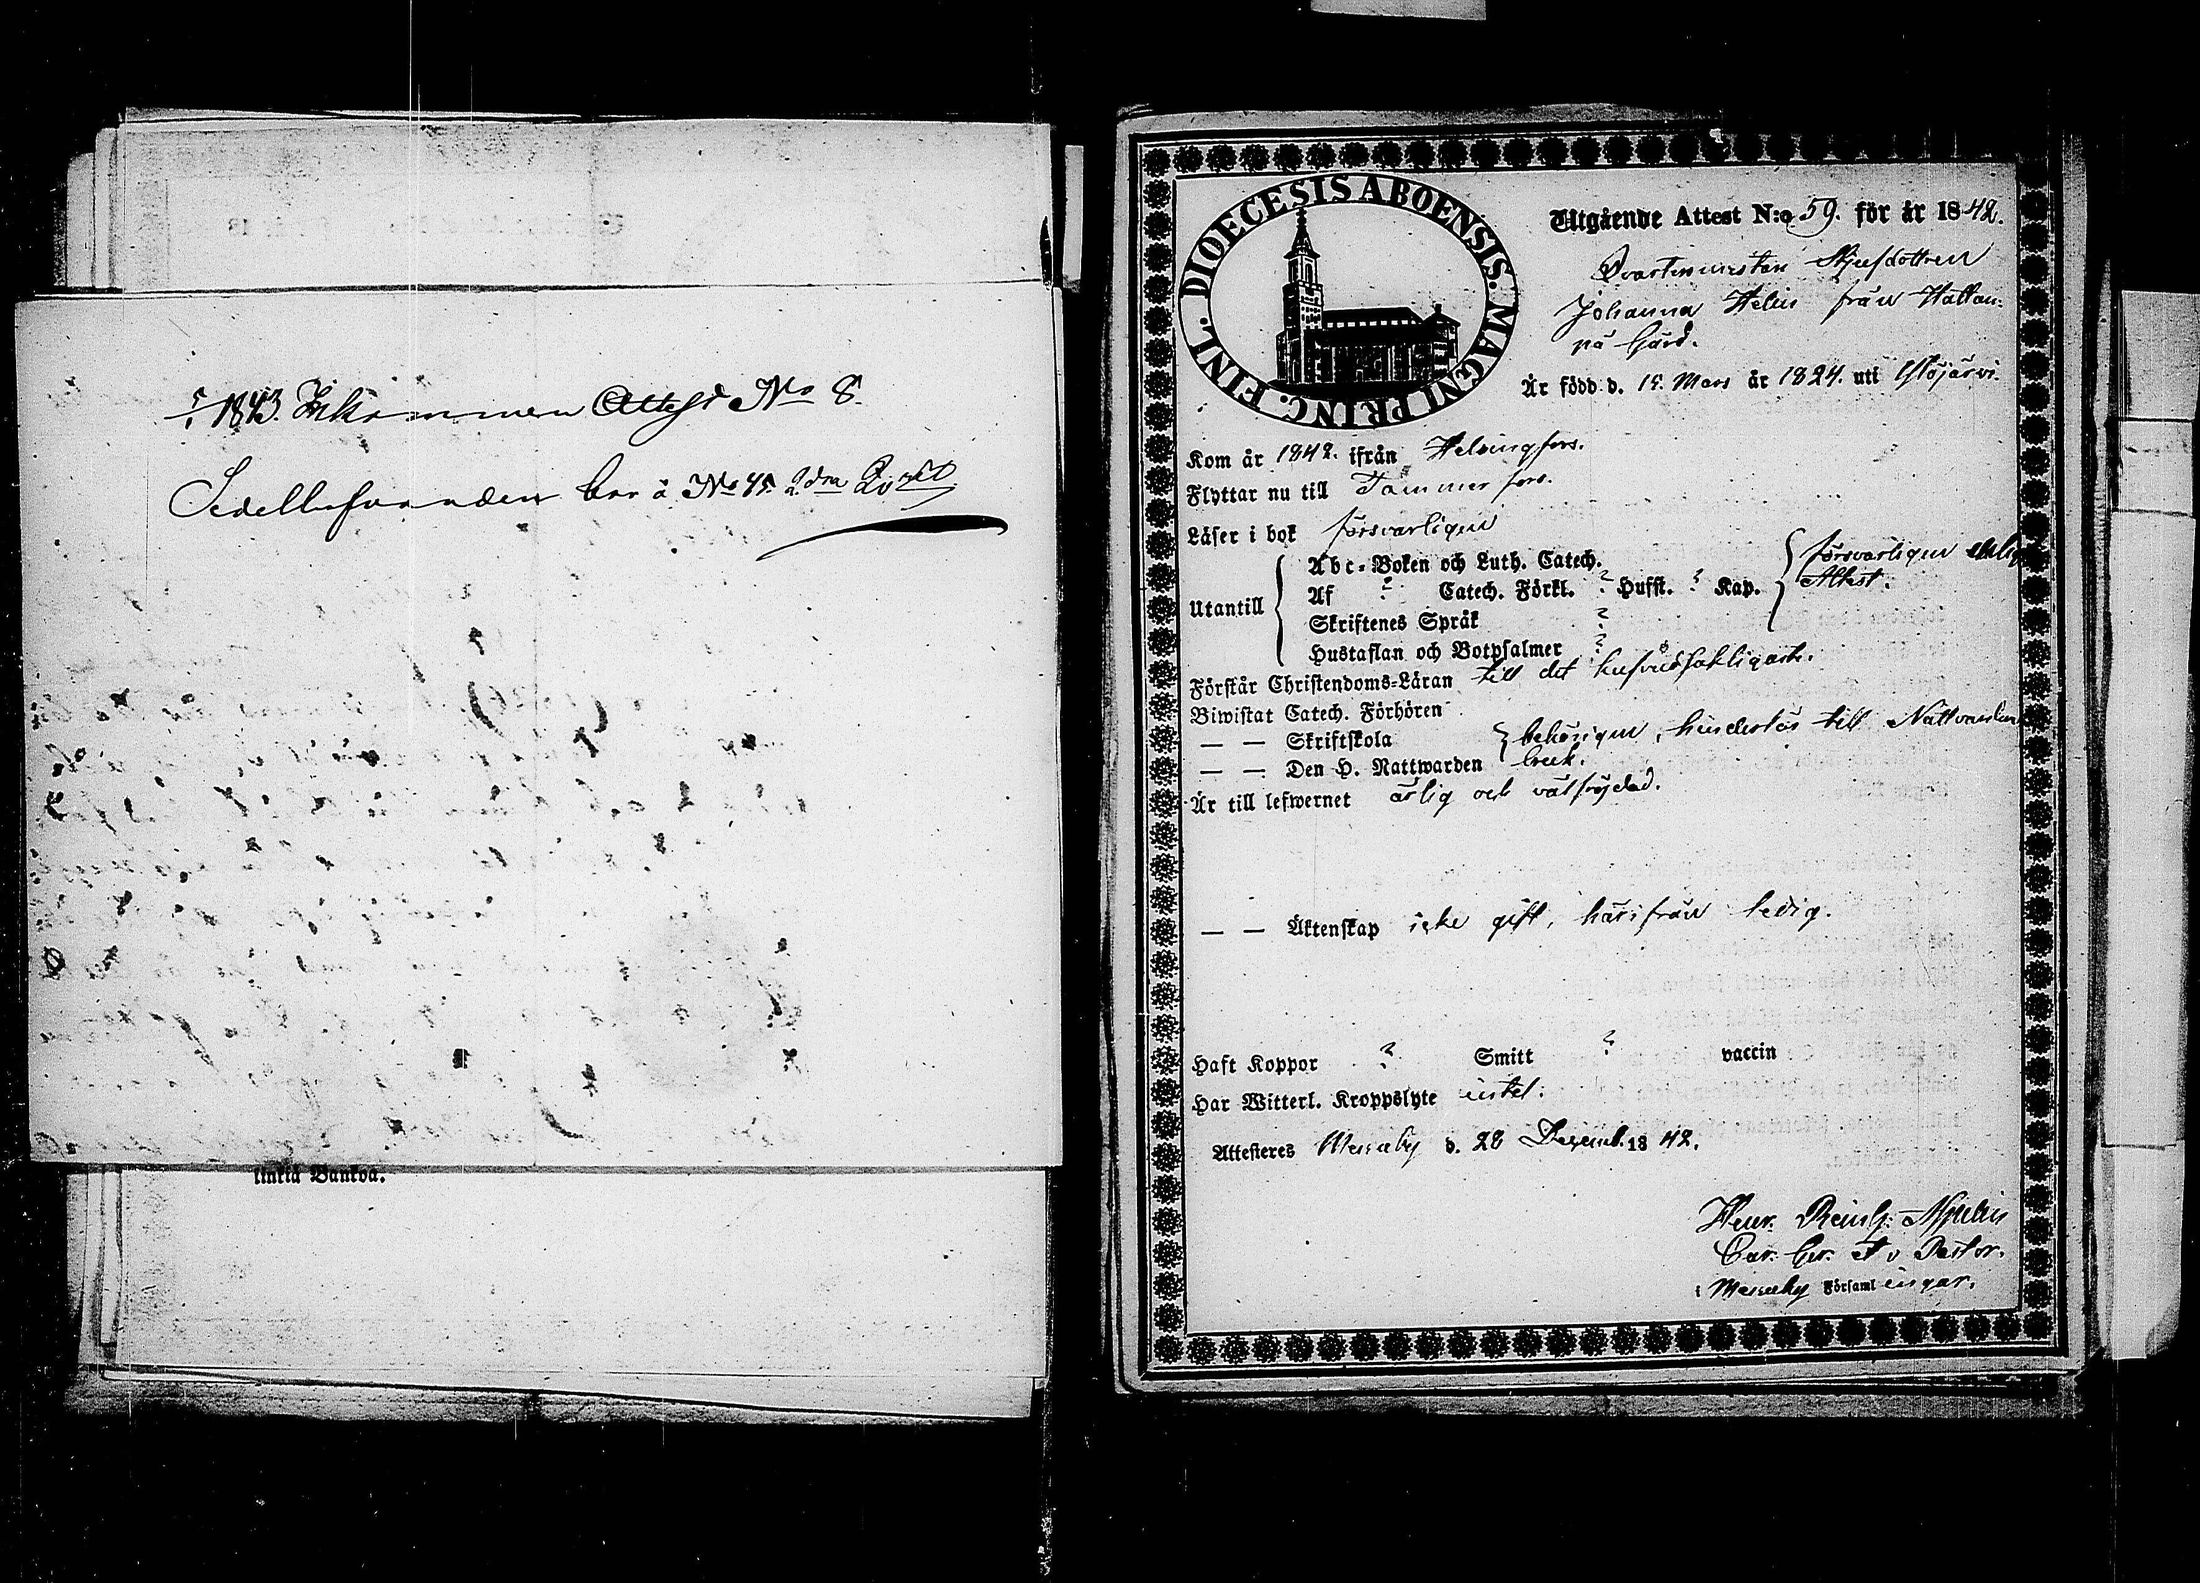 5/1 1843. Inkommen Attest No 8.
Sedellhafvanden bor å No 45. 2dra Qvart
linkia Wankoa.
DIOECESIS ABOENSIS. MAGNI PRINC. FINL.
Utgående Attest N:o 59. för år 1842.
Johanna Helin från Hattan-
pä Gård.
Är född d. 15. Mars år 1824. uti Ylöjärvi.
Kom år 1842. ifrån Helsingfors.
Flyttar nu till Tammerfors.
Läser i bok försvarligen
Utantill
Abc-Boken och Luth. Catech.
Af ? Catech. Förkl. ? Hufst. ? Kap.
försvarligen enligt
Attest.
Skriftenes Språk ?
Hustaflan och Botpsalmer ?
Förstår Christendoms-Läran till det hufvudsakligaste.
Biwistat Catech. Förhören
— — Skriftskola behörigen, hinderlös till Nattvardens
— — Den H. Nattwarden bruk.
Är till lefwernet ärlig och välfrejdad.
— — Äktenskap icke gift, härifrån ledig.
Haft Koppor ? Smitt ? vaccin
Har Witterl. Kroppslyte intet.
Attesteres Messuby d. 28 Decemb. 1842.
Henr. Reinh.
t v Pastor.
i Messuby Församlingar.